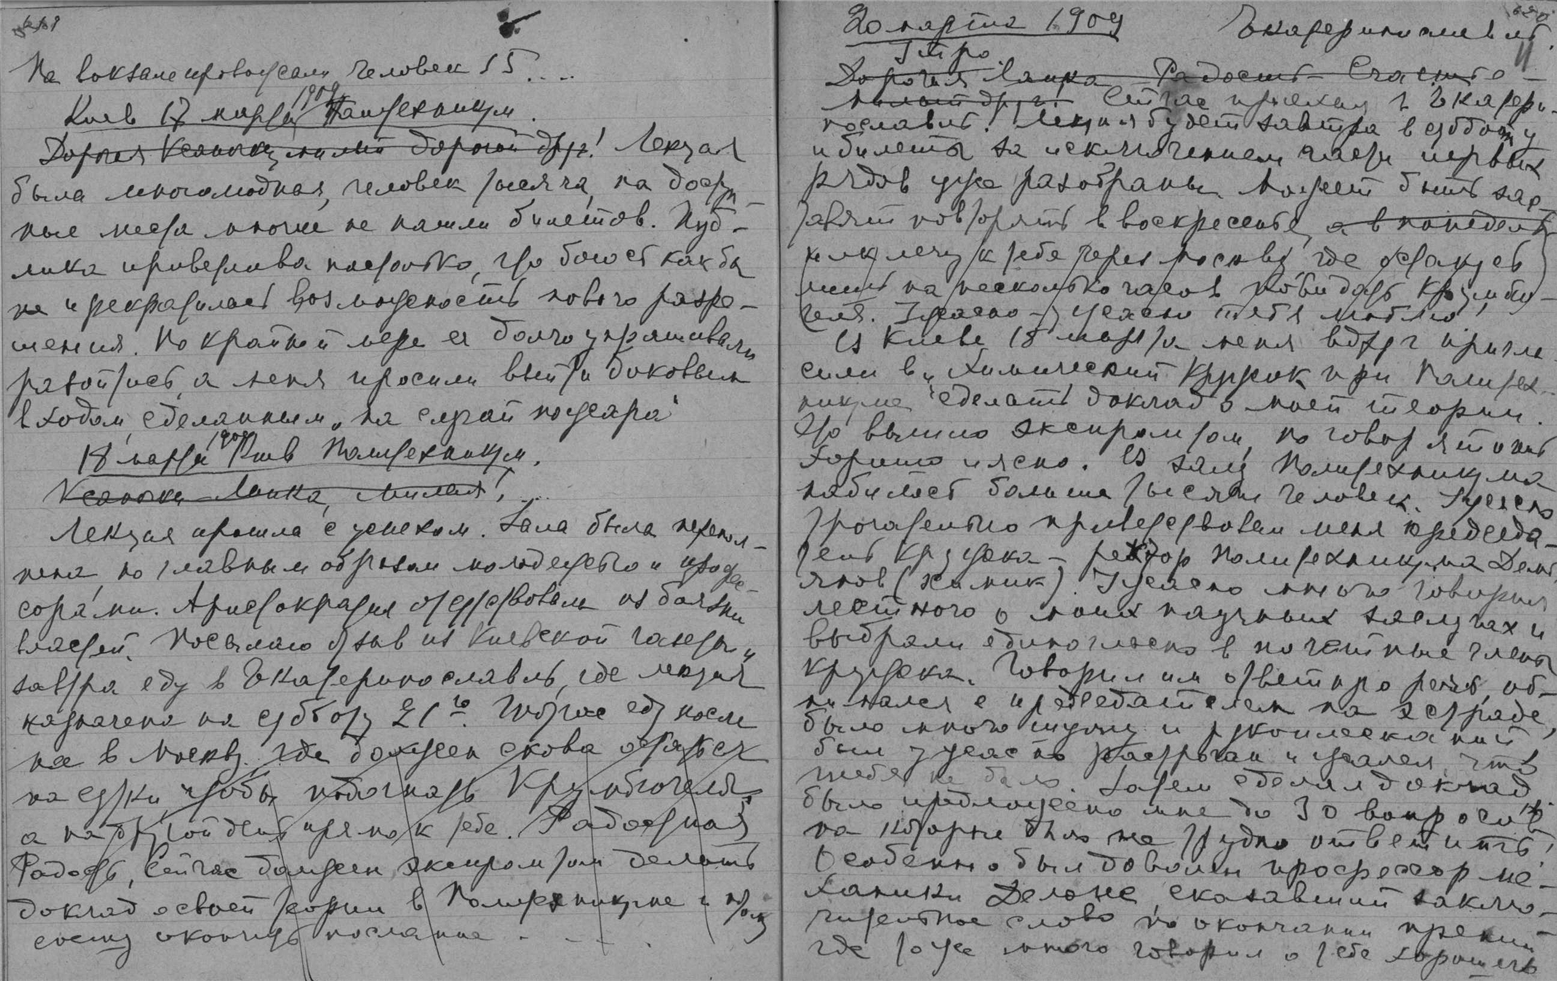 На вокзале провожали человек 15....
Киев 17 марта 1909 Политехникум.
Дорогая Ксаночка, милый дорогой друг! Лекция
была многолюдная, человек тысяча, на доступ-
ные места многие не нашли билетов. Пуб-
лика приветлива настолько, что боюсь как бы
не прекратилась возможность нового разре-
шения. По крайней мере ее долго упрашивали
разойтись, а меня просили выйти боковым
входом, сделанным „на случай пожара"
18 марта 1909 Киев Политехникум.
Ксаночка Лапка, милая!...
Лекция прошла с успехом. Зала была перепол-
нена, но главным образом молодежью и профес-
сорами. Аристократия отсутствовала из боязни
властей. Посылаю отзыв из Киевской газеты и
завтра еду в Екатеринослав, где лекция
назначена на субботу 21го. Тотчас еду после
нее в Москву, где должен снова остаться
на сутки чтобы повидать Крумбюгеля
а на другой день прямо к тебе. Радостная
Радость, сейчас должен экспромтом делать
доклад о своей теории в Политехникуме и потому
спешу окончить послание. . . .
20 марта 1909 Екатеринослав.
Утро
Дорогая Лапка Радость Счастье -
милый друг! Сейчас приехал в Екатери-
нослав! Лекция будет завтра в субботу
и билеты за исключением части первых
рядов уже разобраны. Может быть зас-
тавят повторить в воскресенье, а в понедельн
ик лечу к тебе через Москву, где останусь
лишь на несколько часов повидать Крумбю-
геля. Ужасно - ужасно тебя люблю!
В Киеве 18 марта меня вдруг пригла
сили в „Химический Кружок при Политех-
никуме" сделать доклад о моей теории.
Это вышло экспромтом, но говорят что
хорошо и ясно. В залу Политехникума
набилось больше тысячи человек. Ужасно
трогательно приветствовал меня председа-
тель кружка - ректор Политехникума Демь
янов (химик). Ужасно много говорил
лестного о моих научных заслугах и
выбрали единогласно в почетные члены
кружка. Говорил им ответную речь, об-
нимался с председателем на эстраде,
было много шуму и рукоплесканий
был ужасно растроган и жалел, что
тебя не было. Затем сделал доклад
было предложено мне до 30 вопросов
на которые было не трудно ответить!
Особенно был доволен профессор ме-
ханики Делоне, сказавший заклю-
чительное слово по окончании прений
где тоже много говорил о тебе хорошего